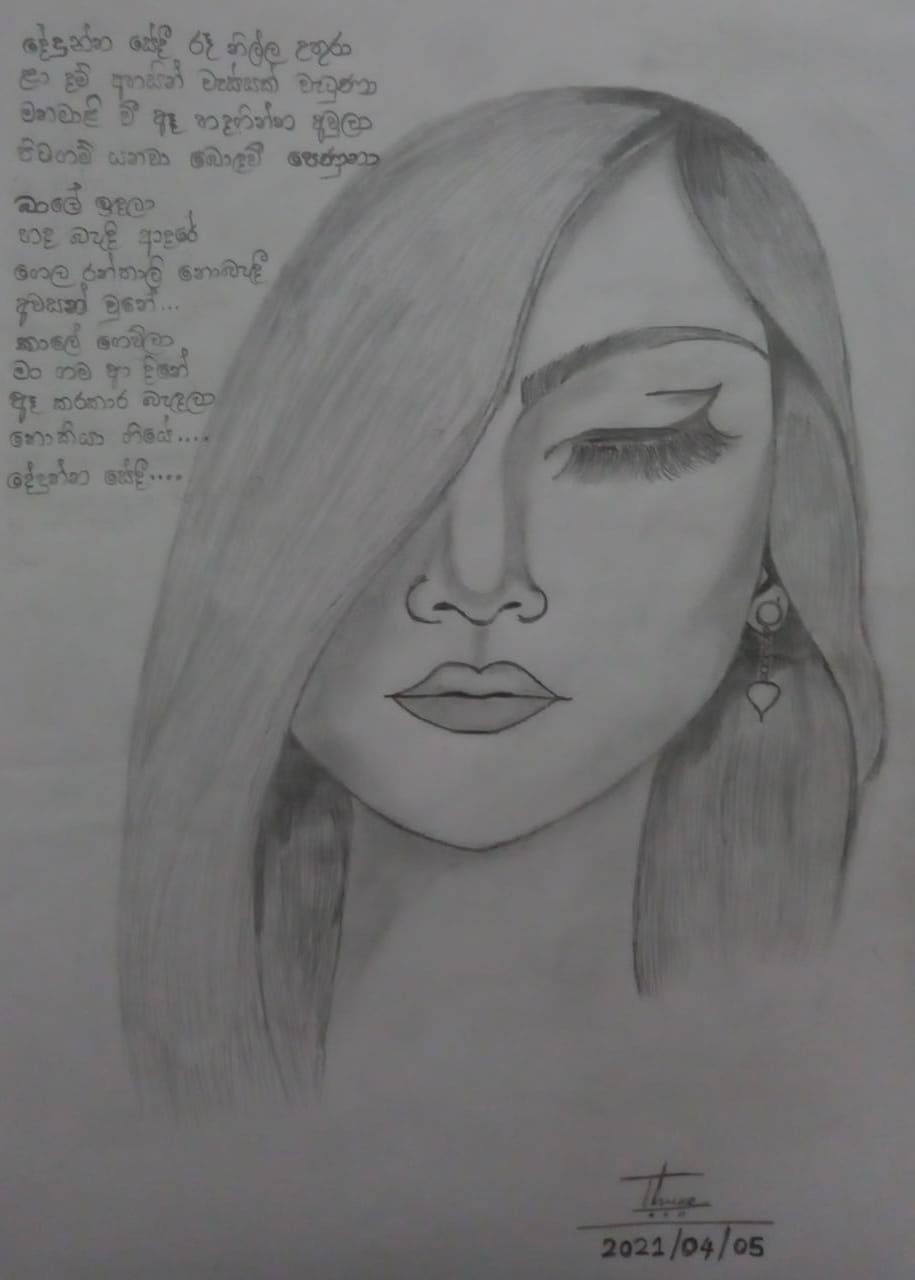 දේදුන්න සේදී රෑ නිල්ල උතුරා
ළා දම් අහසින් වැස්සක් වැටුණා
මනමාලි වී ඈ හදගින්න අවුලා
පිටගම් යනවා බොළඳවී පෙණුනා
බාලේ ඉඳලා
හද බැඳි ආදරේ
ගෙල රන්හාලි නොබැඳී
අවසන් වුනේ...
කාලේ ගෙවිලා
මං ගම ආ දිනේ
ඈ කරකාර බැඳලා
නොකියා ගියේ....
දේදුන්න සේදී....
2021/04/05